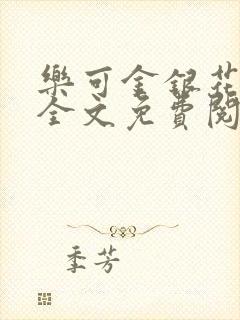 樂可金銀花
全文免費閱
季芳